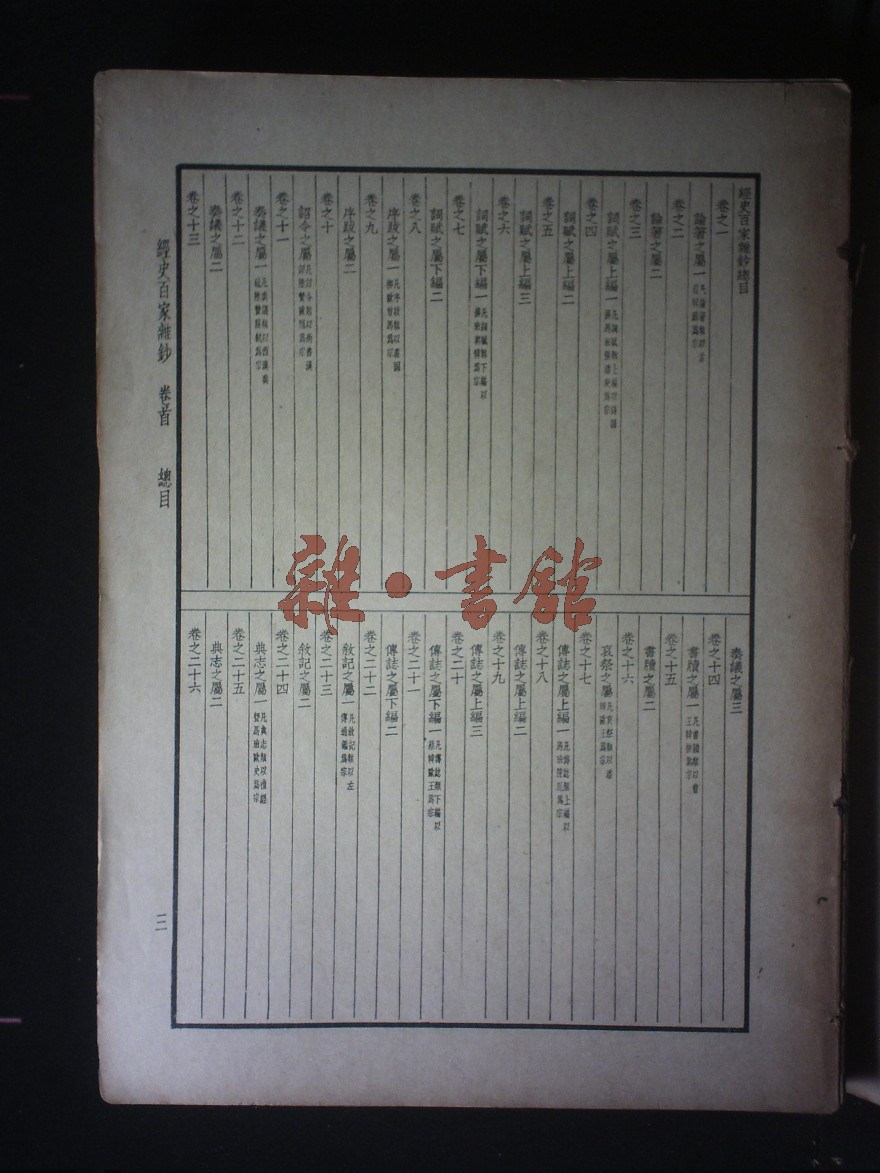 經史百家雜鈔總目
卷之一
論著之屬一
卷之二
論著之屬二
卷之三
詞賦之屬上編一 凡詞賦類上編以詩
卷之四
詞賦之屬上編二
卷之五
詞賦之屬上編三
卷之六
詞賦之屬下編一 凡詞賦類下編以
卷之七
詞賦之屬下編二
卷之八
序跋之屬一
卷之九
序跋之屬二
卷之十
詔令之屬
卷之十一
奏議之屬一
卷之十二
奏議之屬二
卷之十三
奏議之屬三
卷之十四
書牘之屬一 凡書牘類以
卷之十五
書牘之屬二
卷之十六
哀祭之屬
卷之十七
傳誌之屬上編一 凡傳誌類上編以
卷之十八
傳誌之屬上編二
卷之十九
傳誌之屬上編三
卷之二十
傳誌之屬下編一 凡傳誌類下編以
卷之二十一
傳誌之屬下編二
卷之二十二
敘記之屬一 凡敘記類以左傳通鑑為宗
卷之二十三
敘記之屬二
卷之二十四
典志之屬一 凡典志類以
卷之二十五
典志之屬二
卷之二十六
經史百家雜鈔 卷首 總目
雜·書館